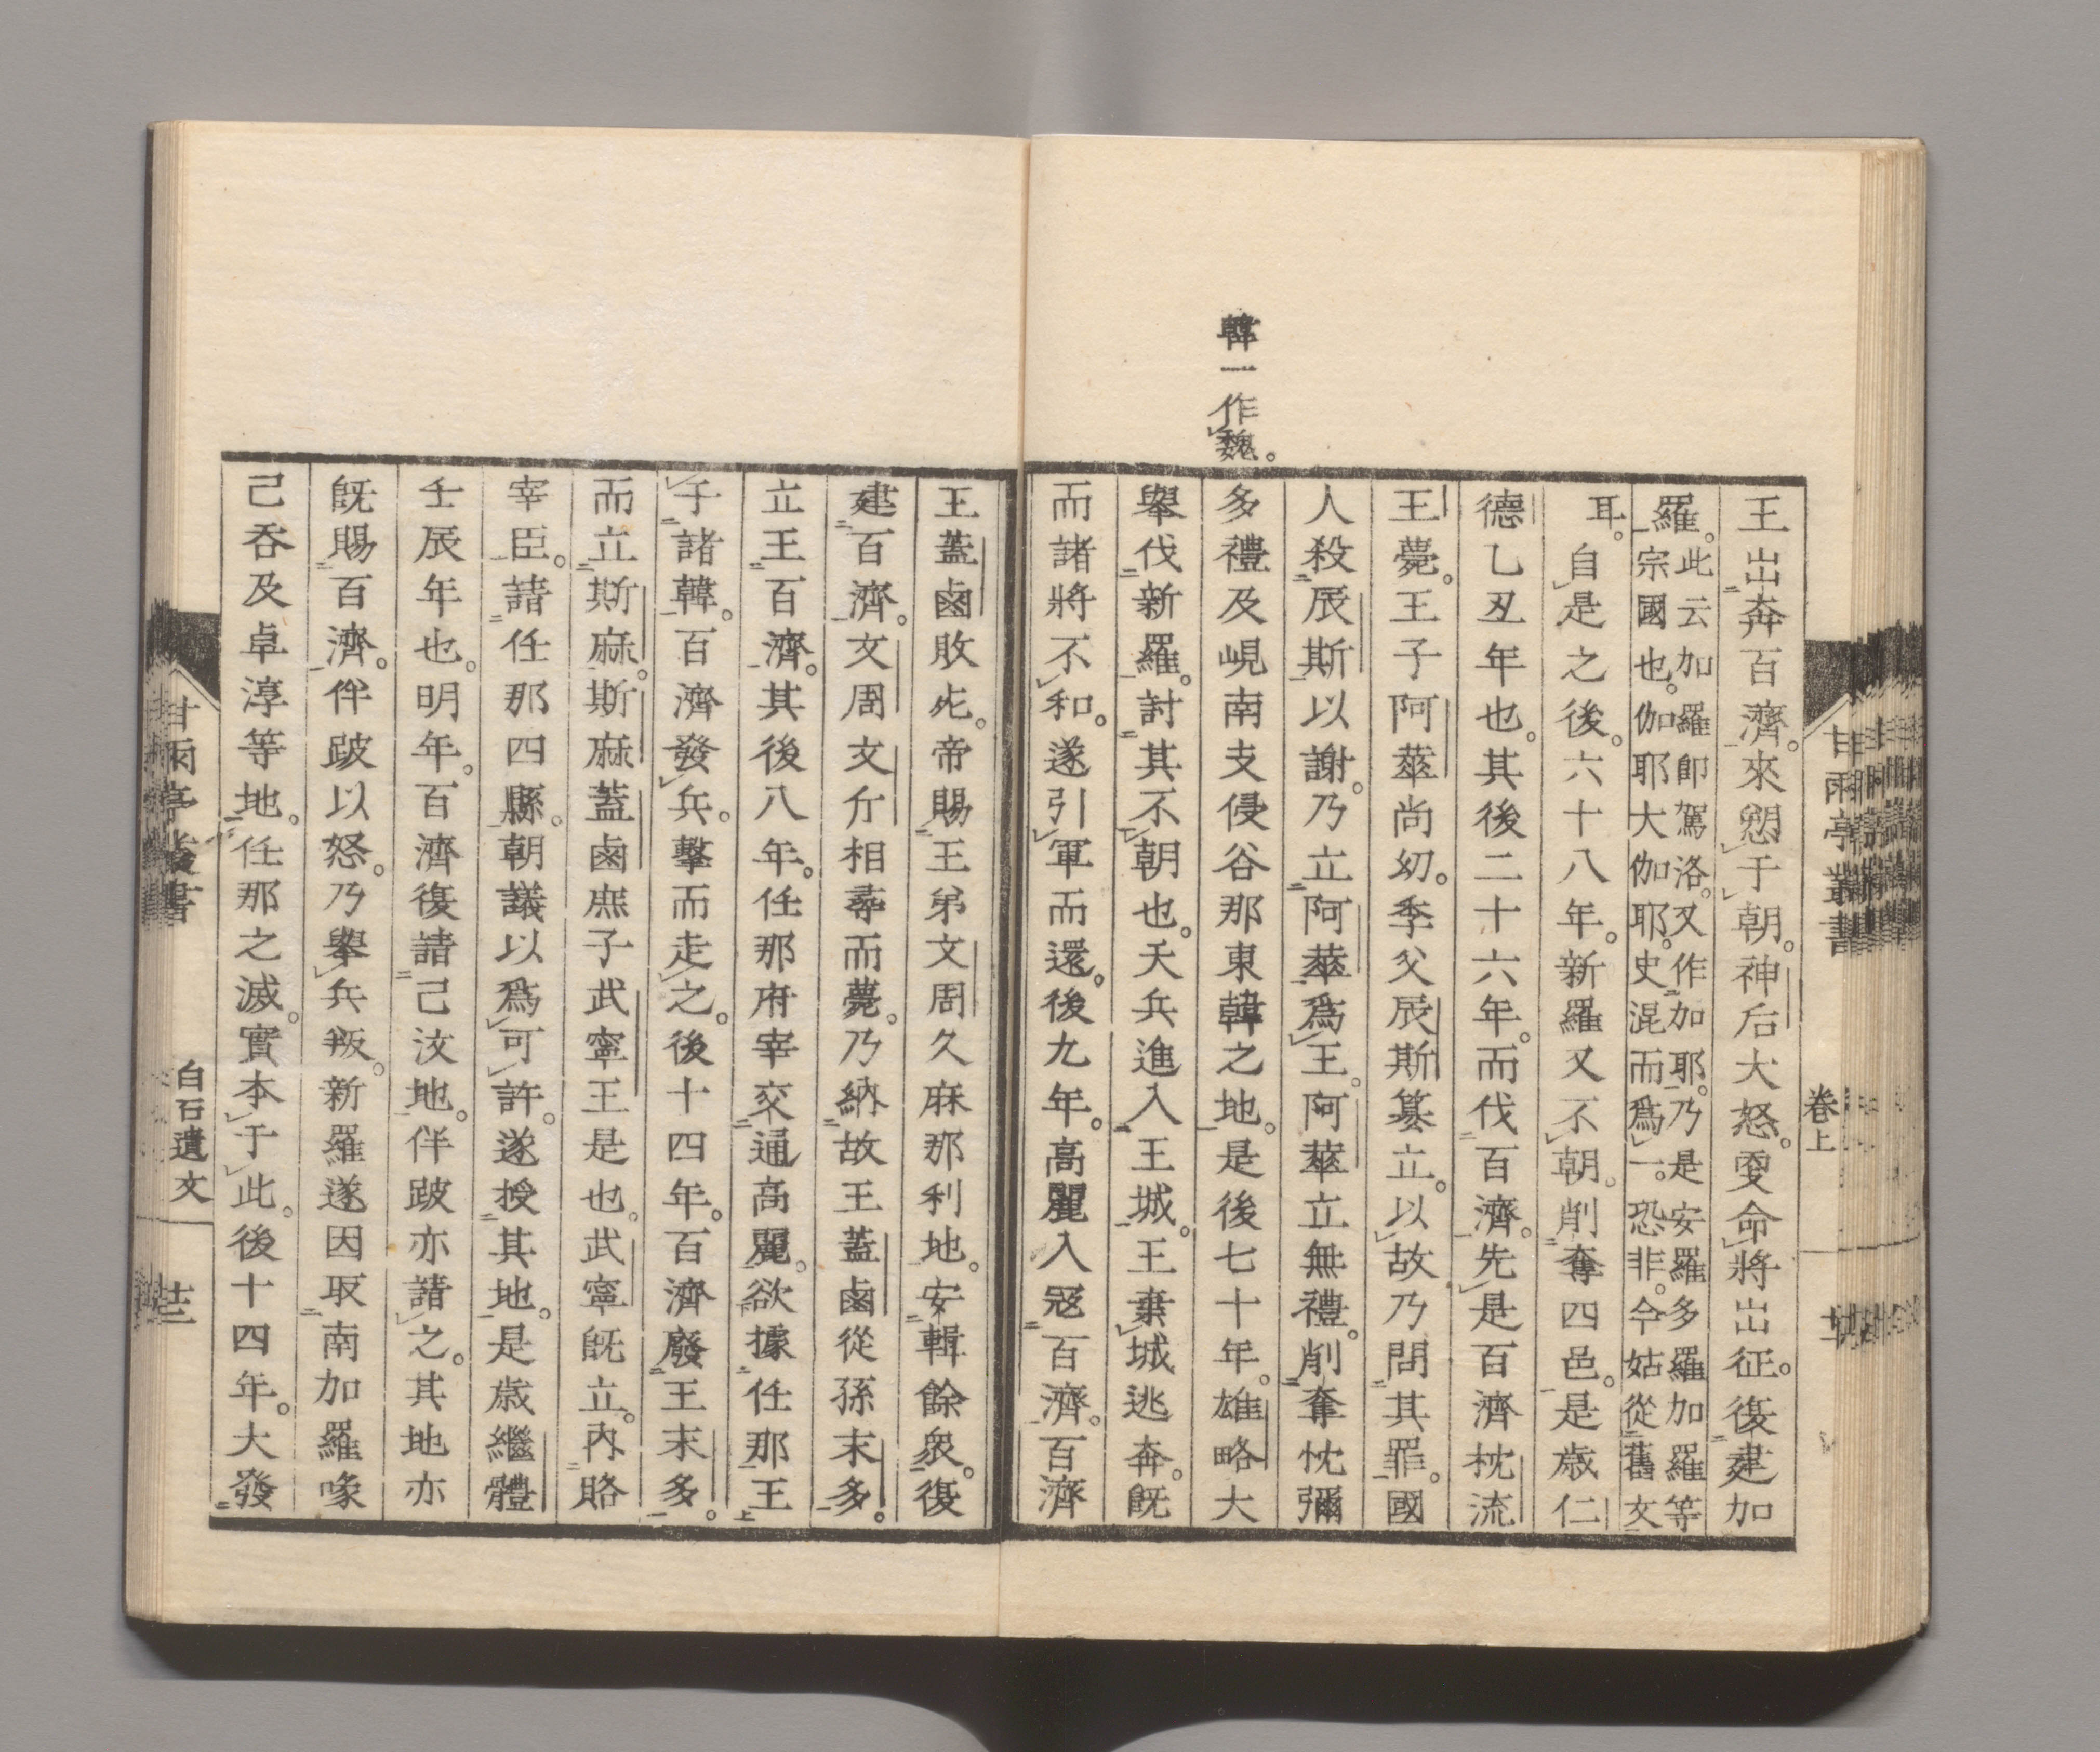 韓一作魏。
王出奔百濟。來愬于朝。神后大怒。更命將出征。復建加
羅。此云加羅卽駕洛。又作加耶。乃是安羅多羅加羅等
宗國也。伽耶大伽耶。史混而爲一。恐非。今姑從舊文
耳。自是之後。六十八年。新羅又不朝。削奪四邑。是歲仁
德乙丑年也。其後二十六年。而伐百濟。先是百濟枕流
王薨。王子阿莘尚幼。季父辰斯簒立。以故乃問其罪。國
人殺辰斯以謝。乃立阿莘爲王。阿莘立無禮。削奪忱彌
多禮及峴南支侵谷那東韓之地。是後七十年。雄略大
舉伐新羅。討其不朝也。天兵進入王城。王棄城逃奔。旣
而諸將不和。遂引軍而還。後九年。高麗入寇百濟。百濟
王蓋鹵敗死。帝賜王弟文周久麻那利地。安輯餘衆。復
建百濟。文周文斤相尋而薨。乃納故王蓋鹵從孫末多。
立王百濟。其後八年。任那府宰交通高麗。欲據任那王
于諸韓。百濟發兵。擊而走之。後十四年。百濟廢王末多。
而立斯麻。斯麻蓋鹵庶子武寧王是也。武寧旣立。內賂
宰臣。請任那四縣。朝議以爲可許。遂授其地。是歲繼體
壬辰年也。明年。百濟復請己汶地。伴跛亦請之。其地亦
旣賜百濟。伴跛以怒。乃舉兵叛。新羅遂因取南加羅喙
己呑及卓淳等地。任那之滅。實本于此。後十四年。大發
甘雨亭叢書
卷上
甘雨亭叢書
白石遺文